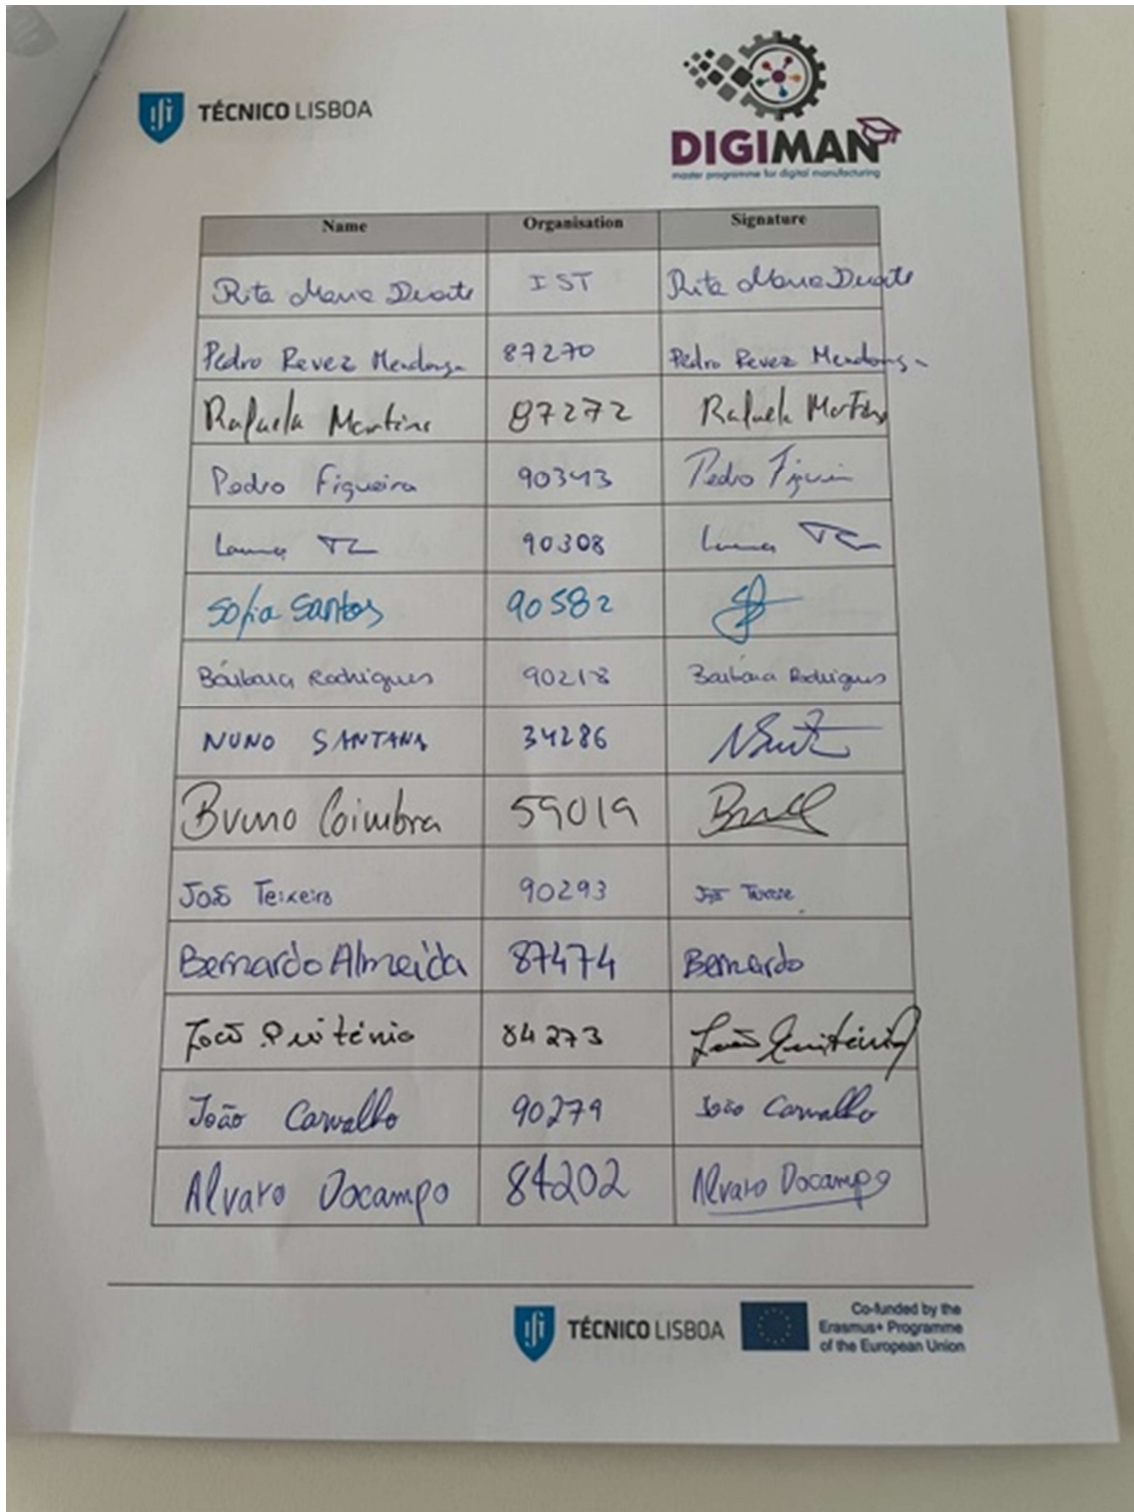 TÉCNICO LISBOA
DIGIMAN
master programme for digital manufacturing
Name Organisation Signature
Rita Maria Duarte IST Rita Maria Duarte
Pedro Revez Mendonça 87270 Pedro Revez Mendonça
Rafaela Martins 87272 Rafaela Martins
Pedro Figueira 90343 Pedro Figueira
90308
Sofia Santos 90582
Bárbara Rodrigues 90218 Bárbara Rodrigues
NUNO SANTANA 34286
Bruno Coimbra 59019
João Teixeira 90293
Bernardo Almeida 87474 Bernardo
João Quitério 84273 João Quitério
João Carvalho 90279 João Carvalho
Alvaro Docampo 84202 Alvaro Docampo
TÉCNICO LISBOA
Co-funded by the
Erasmus+ Programme
of the European Union